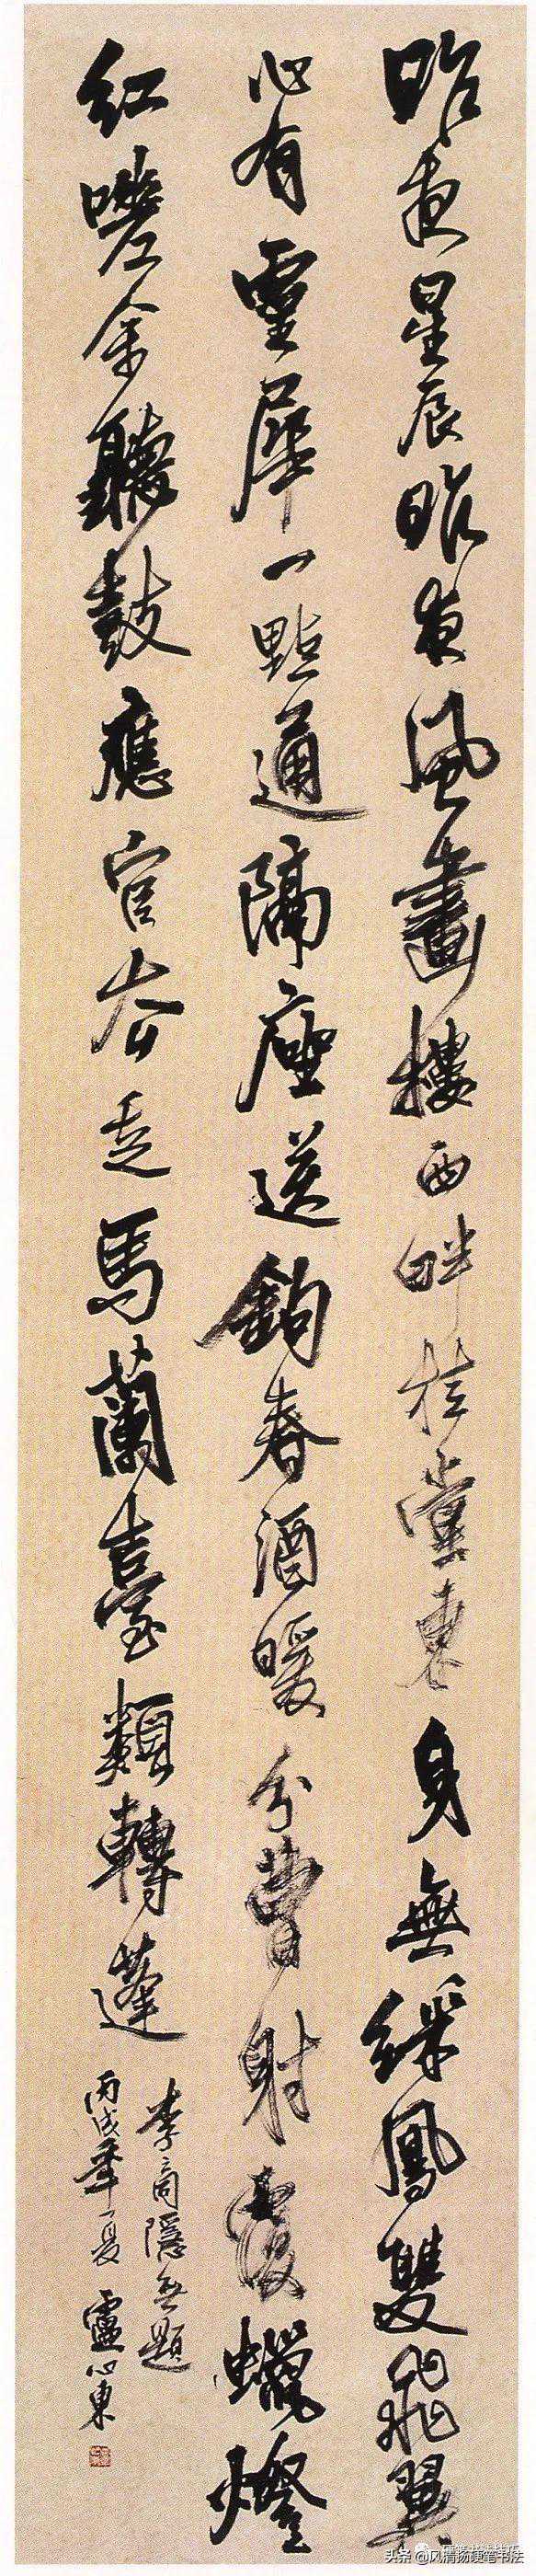 昨夜星辰昨夜風畫樓西畔桂堂東身無綵鳳雙飛翼
心有靈犀一點通隔座送鉤春酒暖分曹射覆蠟燈
紅嗟余聽鼓應官去走馬蘭臺類轉蓬
李商隱無題
丙戌年夏盧心東
头条 @风清扬硬笔书法